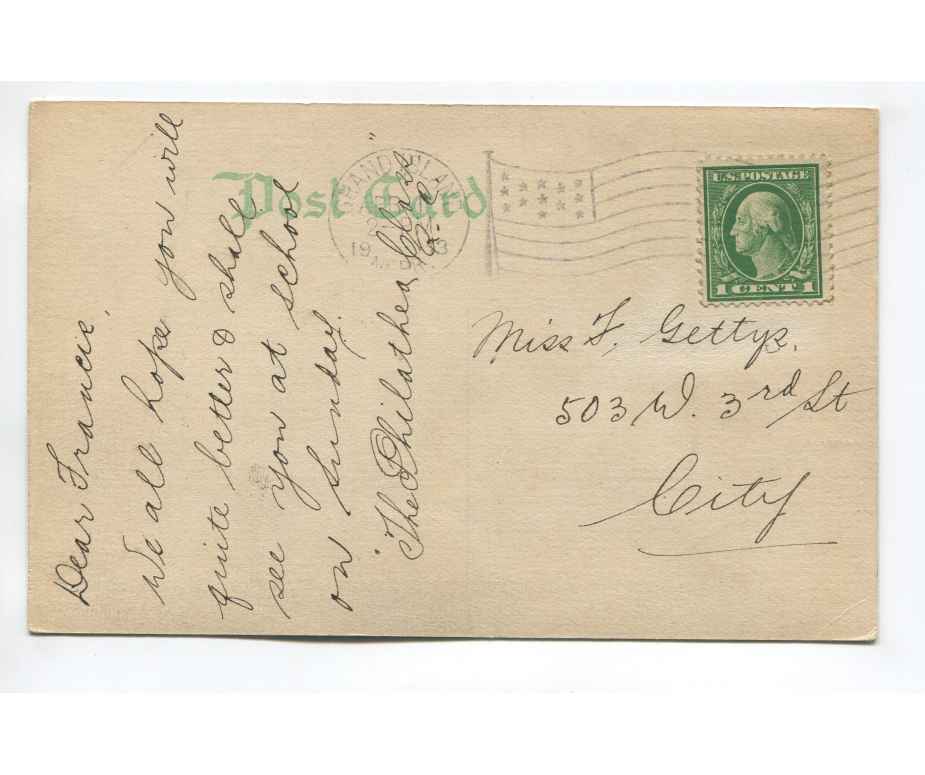 Post Card
GRAND ISLAND
19 13
U.S. POSTAGE
1 CENT 1
Dear Francie,
We all hope you will
quite better & shall
see you at school
on Sunday.
"The Philathea Class"
Miss F. Gettys.
503 W. 3rd St
City